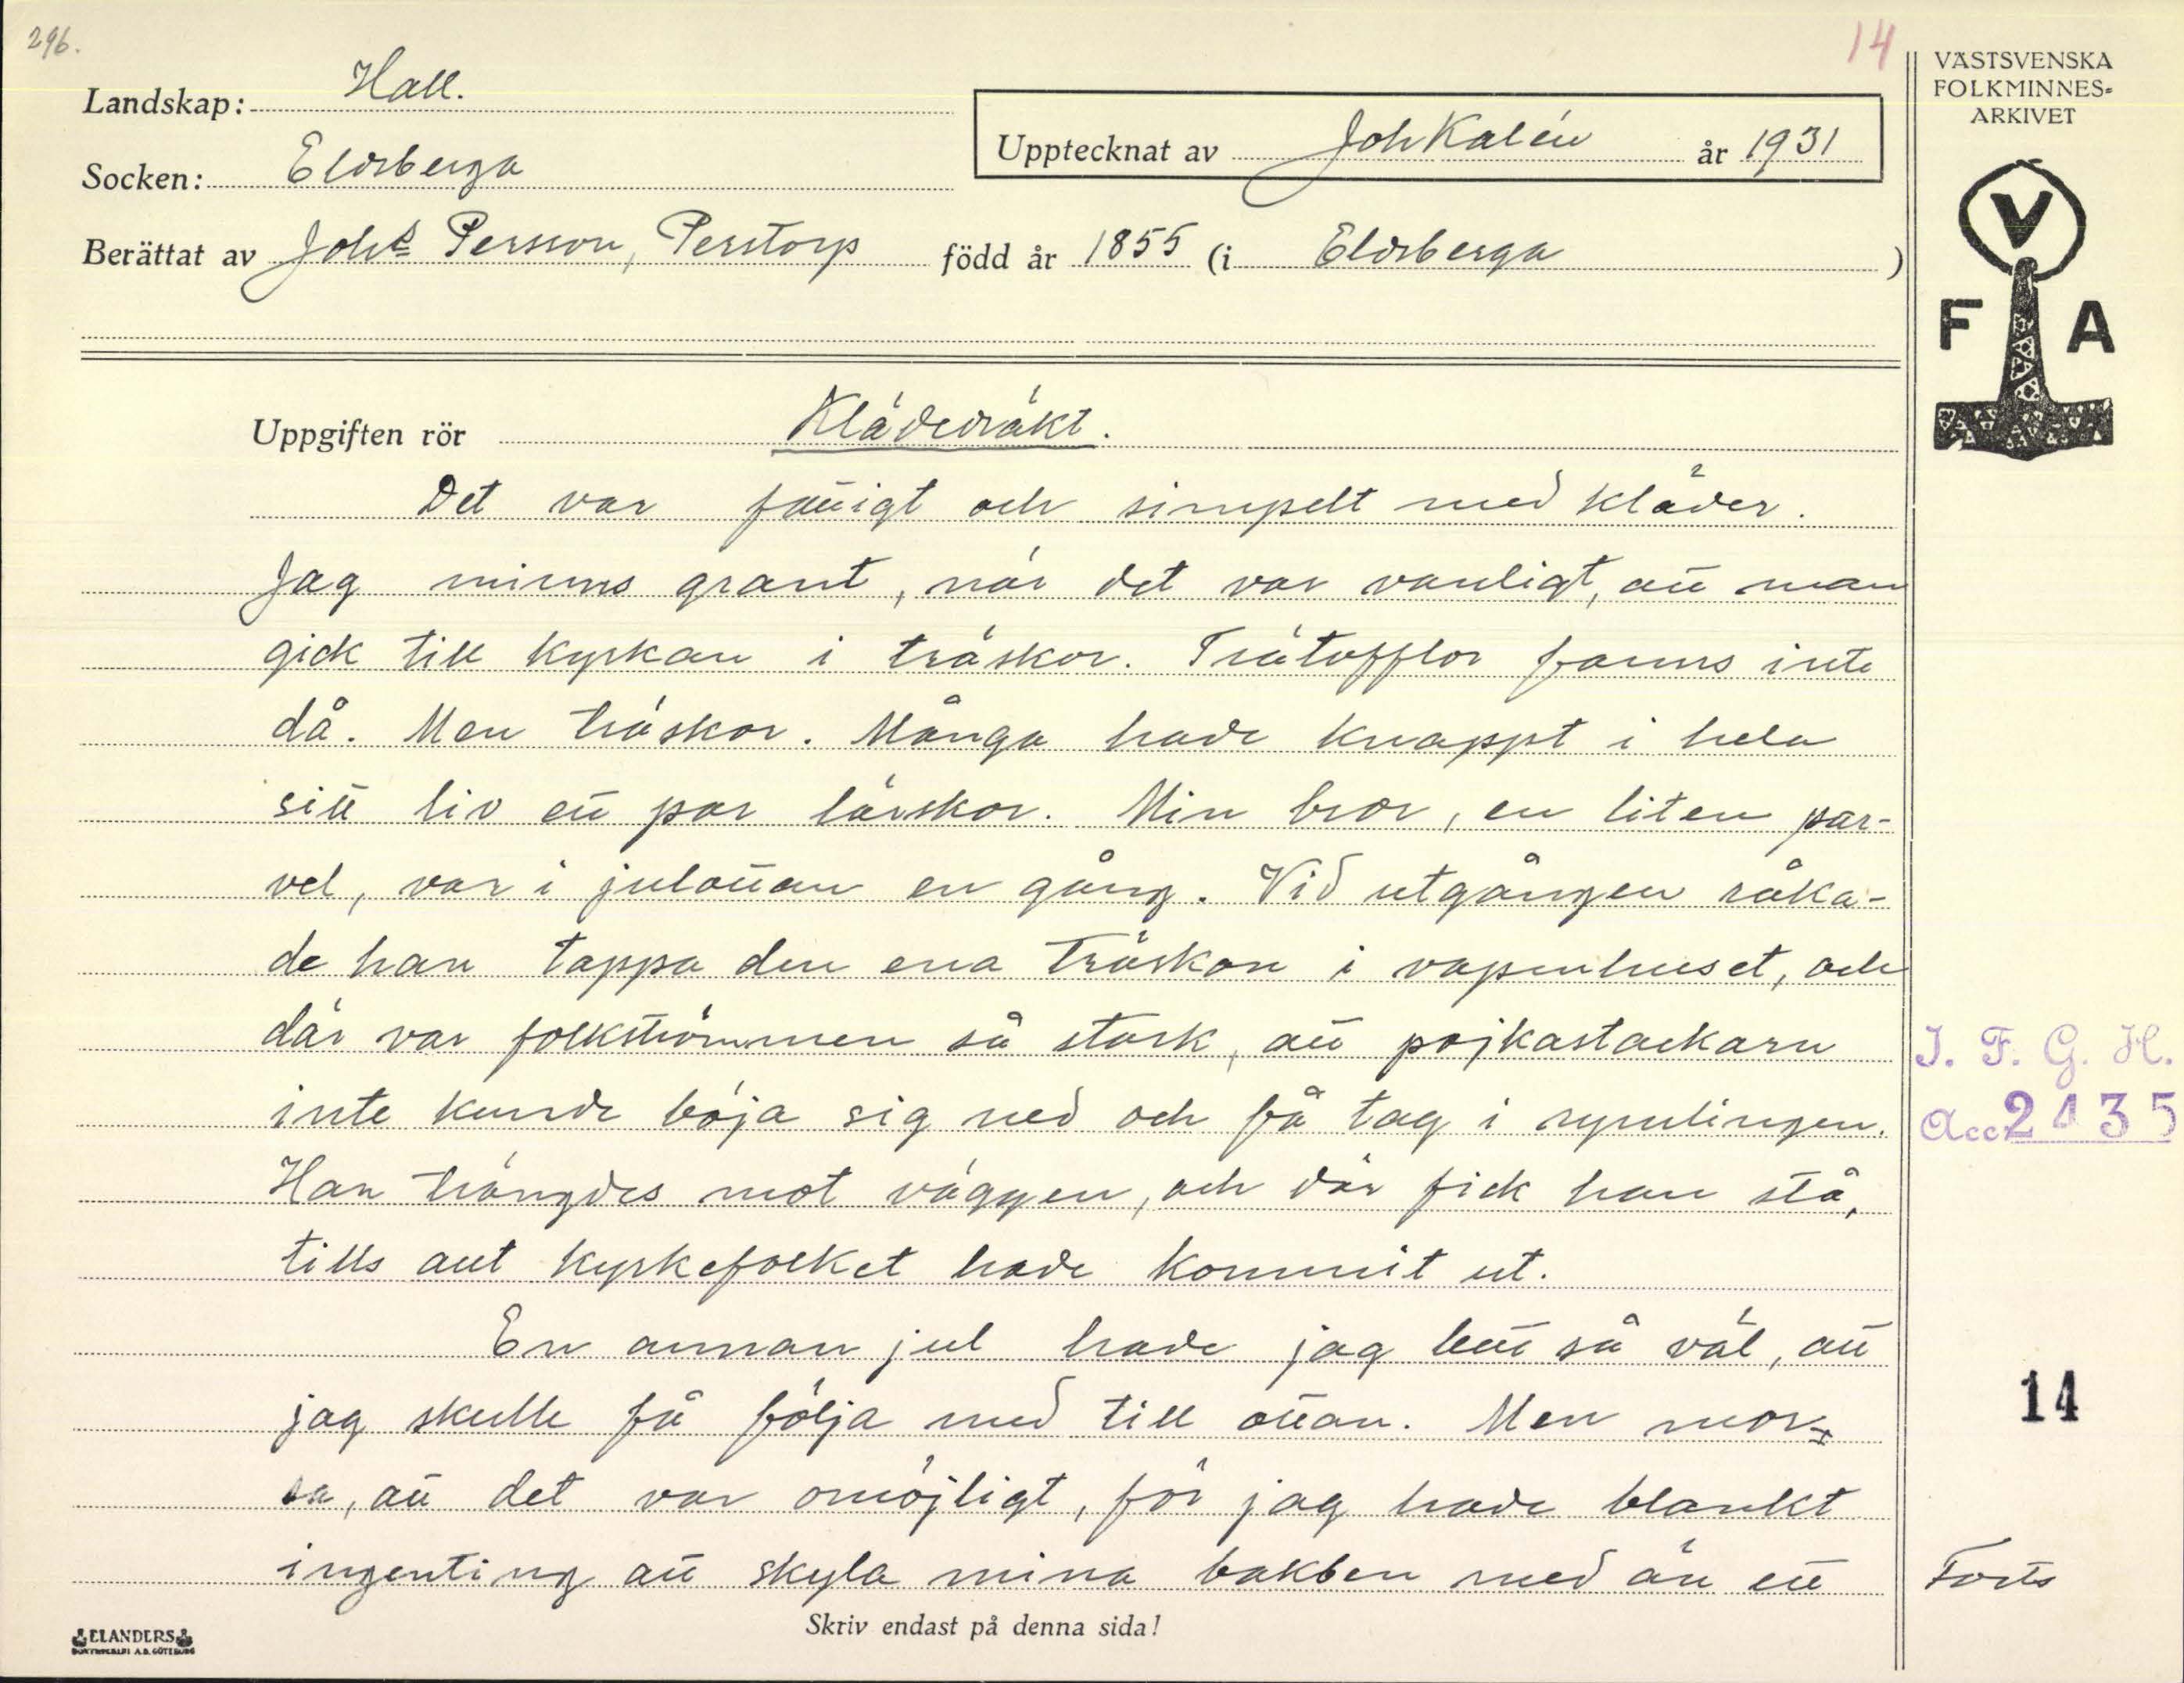 296.
14
VÄSTSVENSKA
FOLKMINNES=
ARKIVET
Landskap: Hall.
Upptecknat av Joh Kalén år 1931
Socken: Eldsberga
Berättat av Johs Persson, Perstorp född år 1855 (i Eldsberga )
V
F A
Uppgiften rör Klädedräkt.
Det var fattigt och simpelt med kläder.
Jag minns grant, när det var vanligt, att man
gick till kyrkan i träskor. Trätofflor fanns inte
då. Men träskor. Många hade knappt i hela
sitt liv ett par lärskor. Min bror, en liten par-
vel, var i julottan en gång. Vid utgången råka-
de han tappa den ena träskon i vapenhuset, och
där var folkströmmen så stark, att pojkastackarn
inte kunde böja sig ned och få tag i rymlingen.
Han trängdes mot väggen, och där fick han stå,
tills allt kyrkefolket hade kommit ut.
En annan jul hade jag bett så väl, att
jag skulle få följa med till ottan. Men mor
sa, att det var omöjligt, för jag hade blankt
ingenting att skyla mina bakben med än ett
I. F. G. H.
Acc 2435
14
Forts
Skriv endast på denna sida!
ELANDERS
BOKTRYCKERI A.B. GÖTEBORG